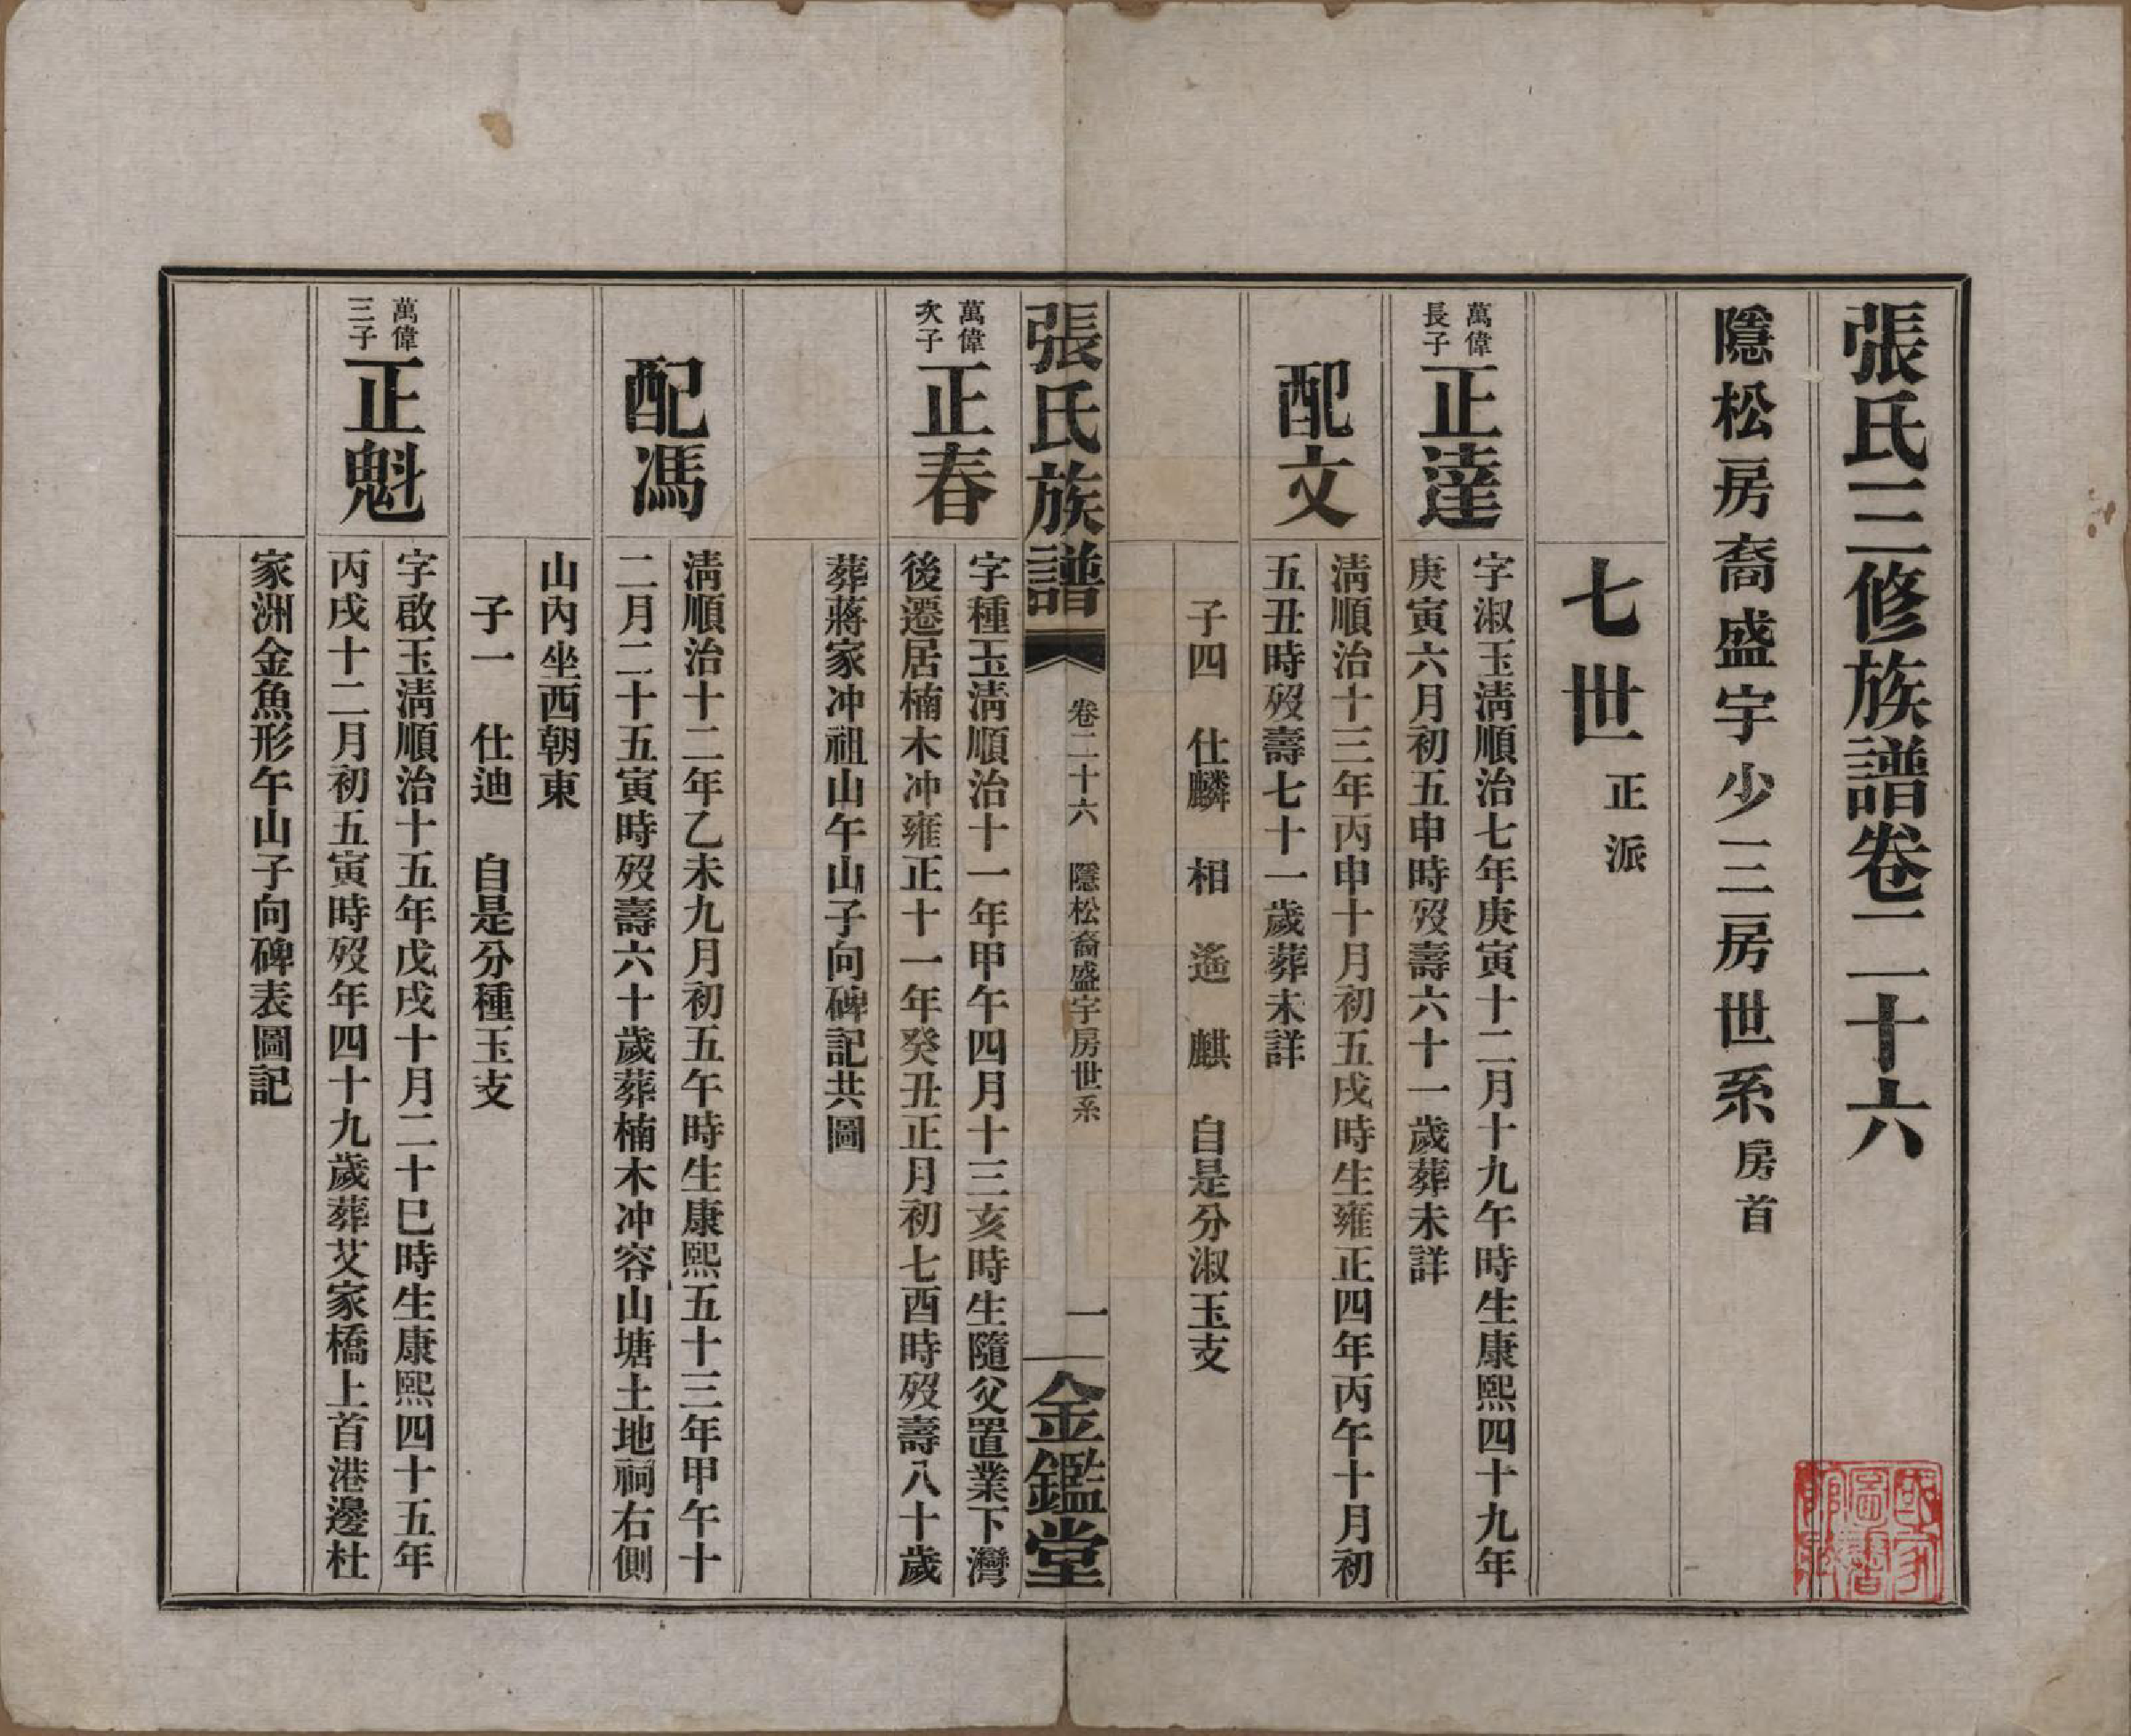 張氏三修族譜卷二十六
隱松房裔盛宇少三房世系房首
七世正派
萬偉
長子
正達
字淑玉淸順治七年庚寅十二月十九午時生康熙四十九年
庚寅六月初五申時歿壽六十一歲葬未詳
配文
淸順治十三年丙申十月初五戌時生雍正四年丙午十月初
五丑時歿壽七十一歲葬未詳
子四　仕麟　相　遙　麒　自是分淑玉支
張氏族譜
卷二十六　隱松裔盛宇房世系
一
金鑑堂
萬偉
次子
正春
字種玉淸順治十一年甲午四月十三亥時生隨父置業下灣
後遷居楠木冲雍正十一年癸丑正月初七酉時歿壽八十歲
葬蔣家冲祖山午山子向碑記共圖
配馮
淸順治十二年乙未九月初五午時生康熙五十三年甲午十
二月二十五寅時歿壽六十歲葬楠木冲容山塘土地祠右側
山內坐西朝東
子一　仕迪　自是分種玉支
萬偉
三子
正魁
字啟玉淸順治十五年戊戌十月二十巳時生康熙四十五年
丙戌十二月初五寅時歿年四十九歲葬艾家橋上首港邊杜
家洲金魚形午山子向碑表圖記